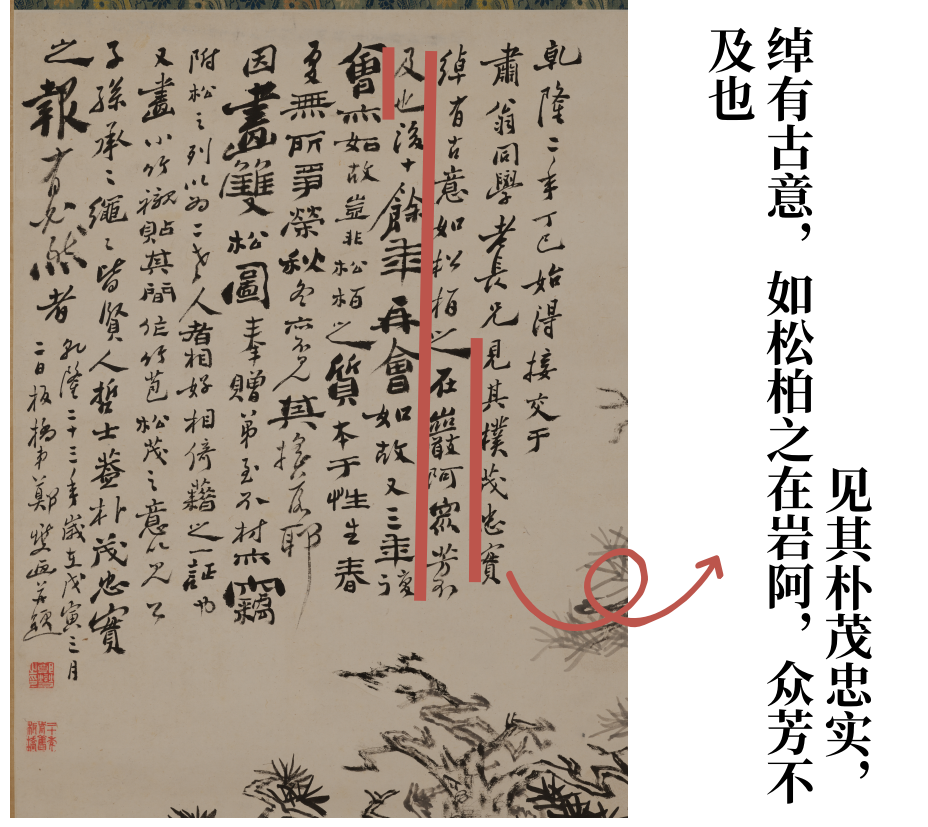 乾隆二年丁巳始得接交于
肅翁同學老長兄見其樸茂忠實
綽有古意如松柏之在巖阿眾芳不
及也後十餘年再會如故又三年復
會亦如故豈非松柏之質本于性生春
夏無所爭榮秋冬亦不見其摧落耶
因畫雙松圖奉贈弟至不材亦竊
附松之列以為二老人者相好相倚藉之一証也
又畫小竹襯貼其間作竹苞松茂之意以見公
子孫承承繩繩皆賢人哲士蓋朴茂忠實
之報有必然者
乾隆二十三年歲在戊寅三月
二日板橋弟鄭燮畫并題
见其朴茂忠实，
绰有古意，如松柏之在岩阿，众芳不
及也